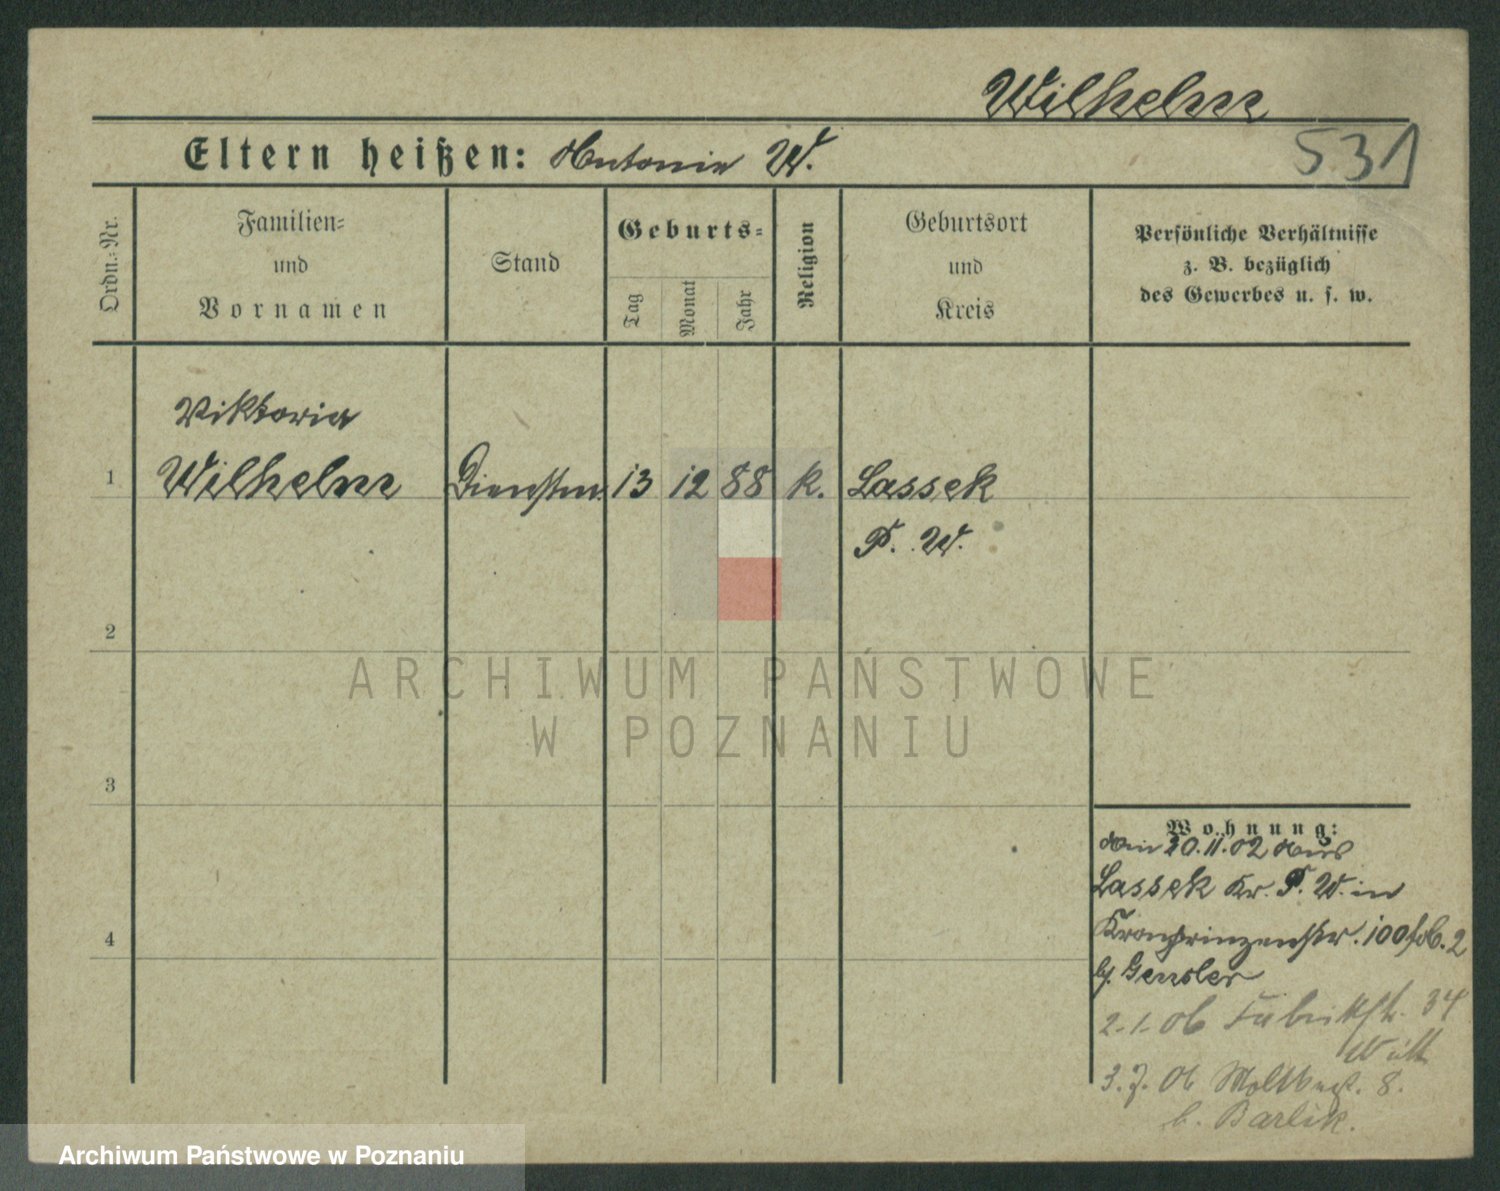 Wilhelm
531
Eltern heißen: Antonie W.
Ordn.-Nr.
Familien-
und
Vornamen
Stand
Geburts-
Tag
Monat
Jahr
Religion
Geburtsort
und
Kreis
Persönliche Verhältnisse
z. B. bezüglich
des Gewerbes u. s. w.
Viktoria
1 Wilhelm Dienstm. 13 12 88 k. Lassek
P. W.
2
3
4
Wohnung:
30.11.02 aus
Lassek Kr. P. W. in
Kronprinzenstr. 100
b. Gensler
2.1.06 Fabrikstr. 34
3.7.06 Moltkestr. 8.
b. Barlik.
ARCHIWUM PAŃSTWOWE
W POZNANIU
Archiwum Państwowe w Poznaniu